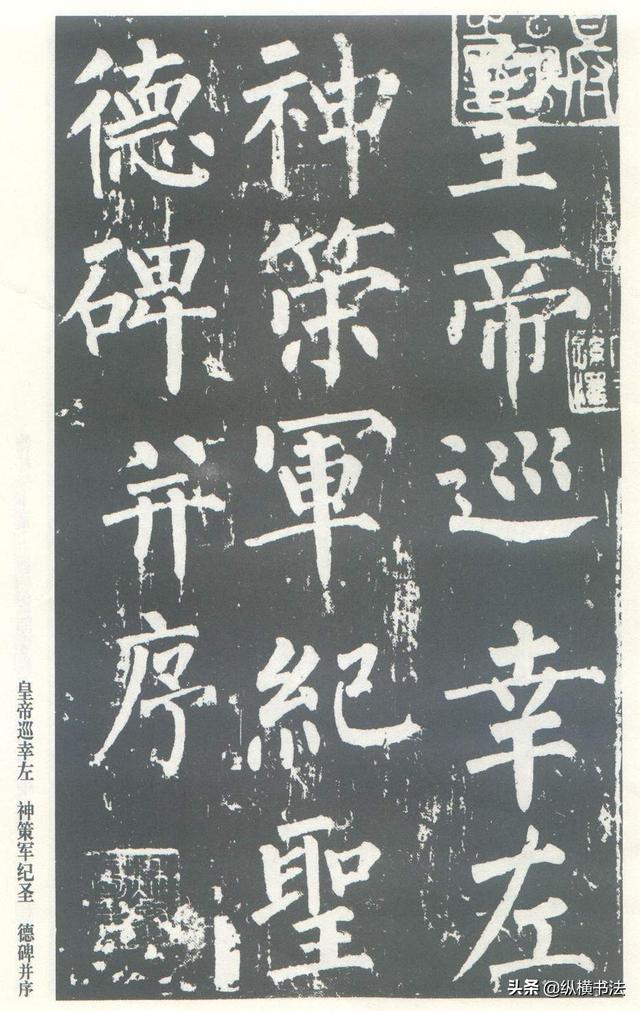 皇帝巡幸左
神策軍紀聖
德碑并序
皇帝巡幸左 神策军纪圣 德碑并序
头条 @纵横书法